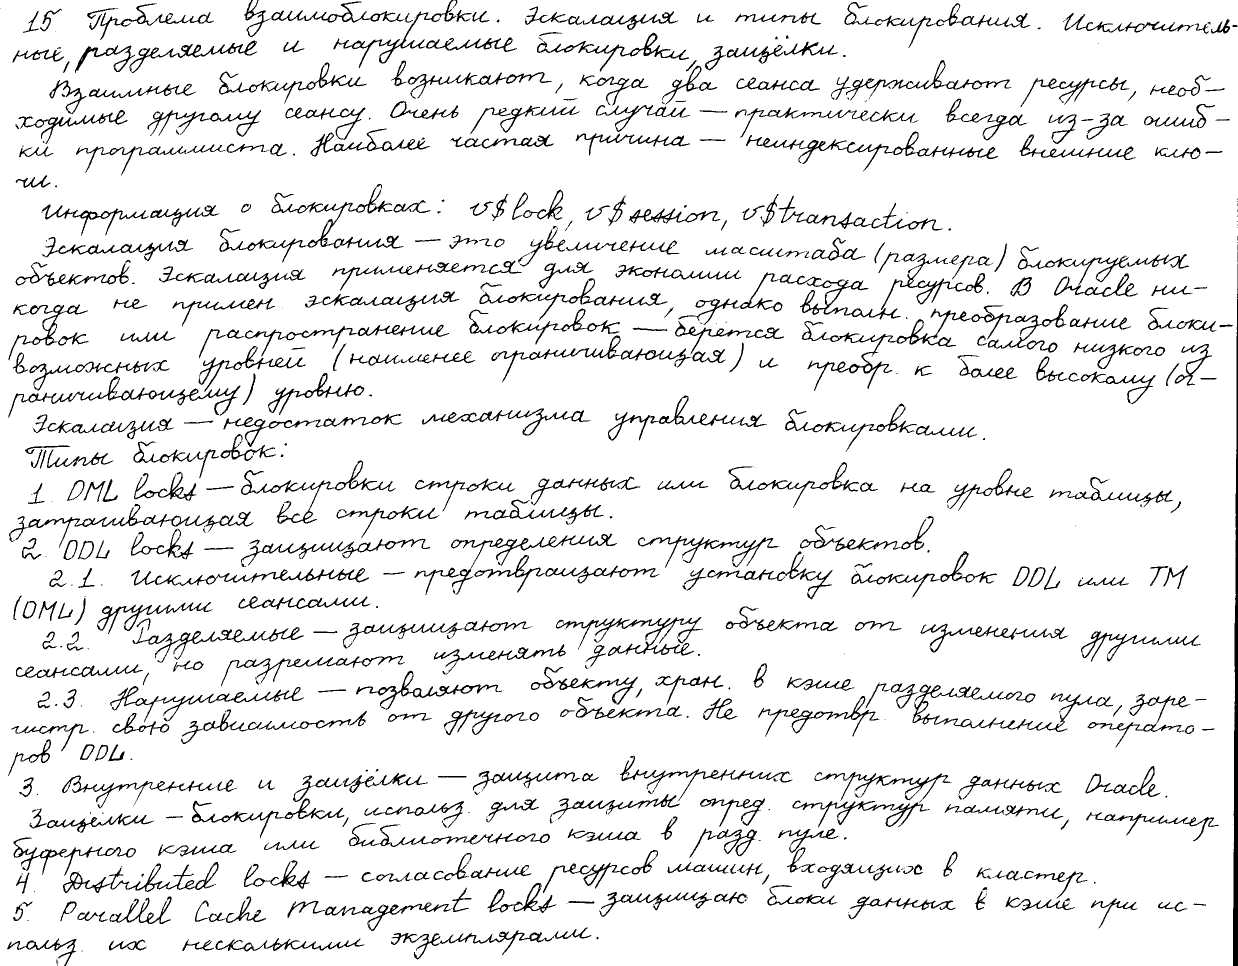 15 Проблема взаимоблокировки. Эскалация и типы блокирования. Исключитель-
ные, разделяемые и нарушаемые блокировки, защёлки.
Взаимные блокировки возникают, когда два сеанса удерживают ресурсы, необ-
ходимые другому сеансу. Очень редкий случай – практически всегда из-за ошиб-
ки программиста. Наиболее частая причина – неиндексированные внешние клю-
чи.
Информация о блокировках: v$lock, v$session, v$transaction.
Эскалация блокирования – это увеличение масштаба (размера) блокируемых
объектов. Эскалация применяется для экономии расхода ресурсов. В Oracle ни-
когда не примен. эскалация блокирования, однако выполн. преобразование блоки-
ровок или распространение блокировок – берётся блокировка самого низкого из
возможных уровней (наименее ограничивающая) и преобр. к более высокому (ог-
раничивающему) уровню.
Эскалация – недостаток механизма управления блокировками.
Типы блокировок:
1. DML locks – блокировки строки данных или блокировка на уровне таблицы,
затрагивающая все строки таблицы.
2. DDL locks – защищают определения структур объектов.
2.1. Исключительные – предотвращают установку блокировок DDL или TM
(DML) другими сеансами.
2.2. Разделяемые – защищают структуру объекта от изменения другими
сеансами, но разрешают изменять данные.
2.3. Нарушаемые – позволяют объекту, хран. в кэше разделяемого пула, заре-
гистр. свою зависимость от другого объекта. Не предотвр. выполнение операто-
ров DDL.
3. Внутренние и защёлки – защита внутренних структур данных Oracle.
Защёлки – блокировки, использ. для защиты опред. структур памяти, например
буферного кэша или библиотечного кэша в разд. пуле.
4. Distributed locks – согласование ресурсов машин, входящих в кластер.
5. Parallel Cache Management locks – защищаю блоки данных в кэше при ис-
польз. их несколькими экземплярами.